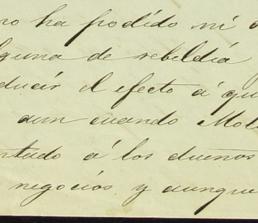 no ha podido ni
alguna de rebeldía
ducir el efecto á qu
aun cuando Mol
ntado á los duenos
negocios y aunque